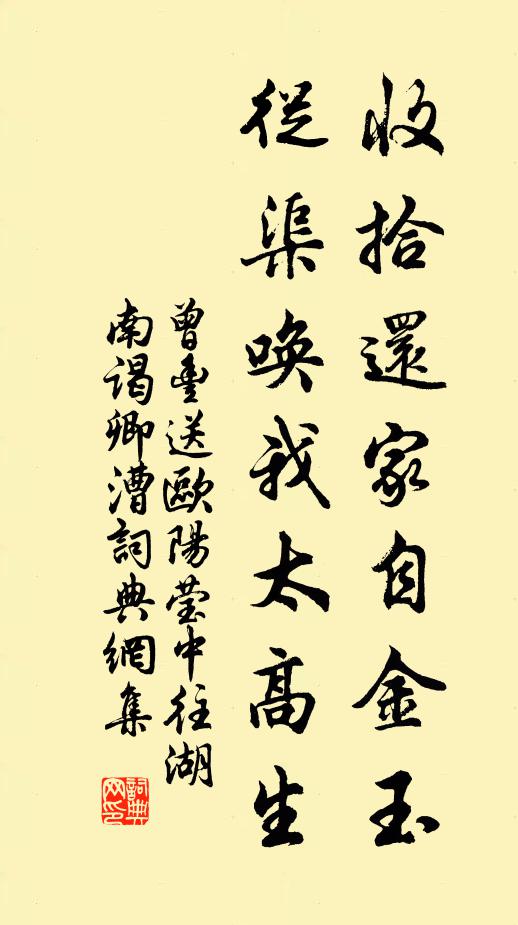 收拾還家自金玉
從渠喚我太高生
曾豐送歐陽瑩中往湖
南謁卿漕詞典網集
詞典
网印